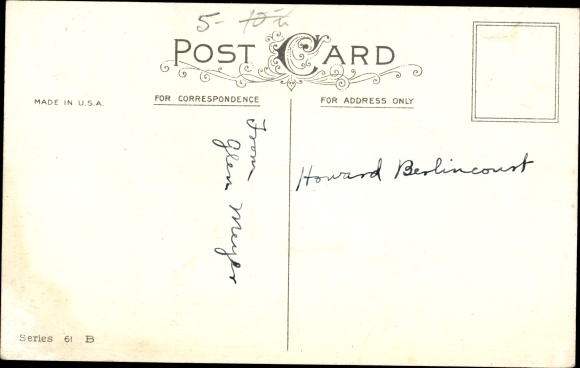 5- 10¢
POST CARD
MADE IN U.S.A.
FOR CORRESPONDENCE
FOR ADDRESS ONLY
From
Glen Meyer
Howard Berlincourt
Series 61 B